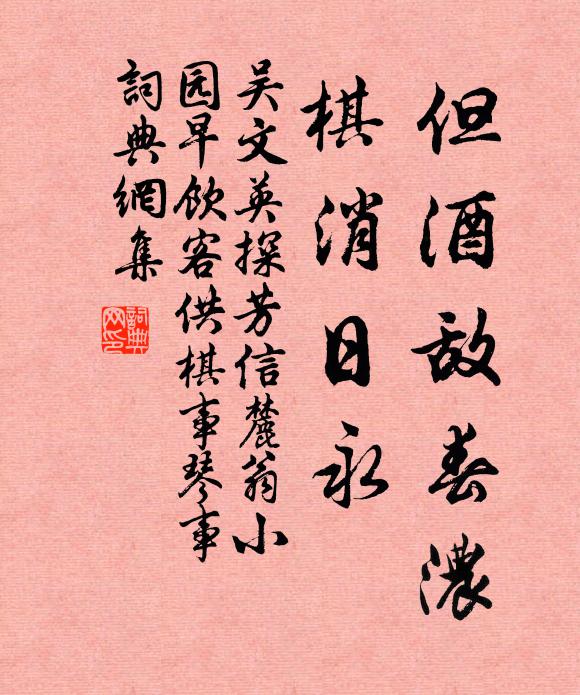 但酒敌春濃
棋消日永
吴文英探芳信麓翁小
园早飲客供棋事琴事
詞典網集
詞典
网印